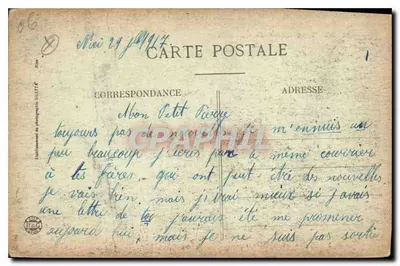 Nici 29 1917
CARTE POSTALE
CORRESPONDANCE
ADRESSE
Mon Petit Pierre
toujours pas de nouvelles m'ennuis un
peu beaucoup j'écris par le même courrier
à tes frères, qui ont peut être des nouvelles
je vais bien, mais j'irai mieux si j'avais
une lettre de toi j'aurais été me promener
aujourd hui, mais je ne suis pas sortie
CARPHILA